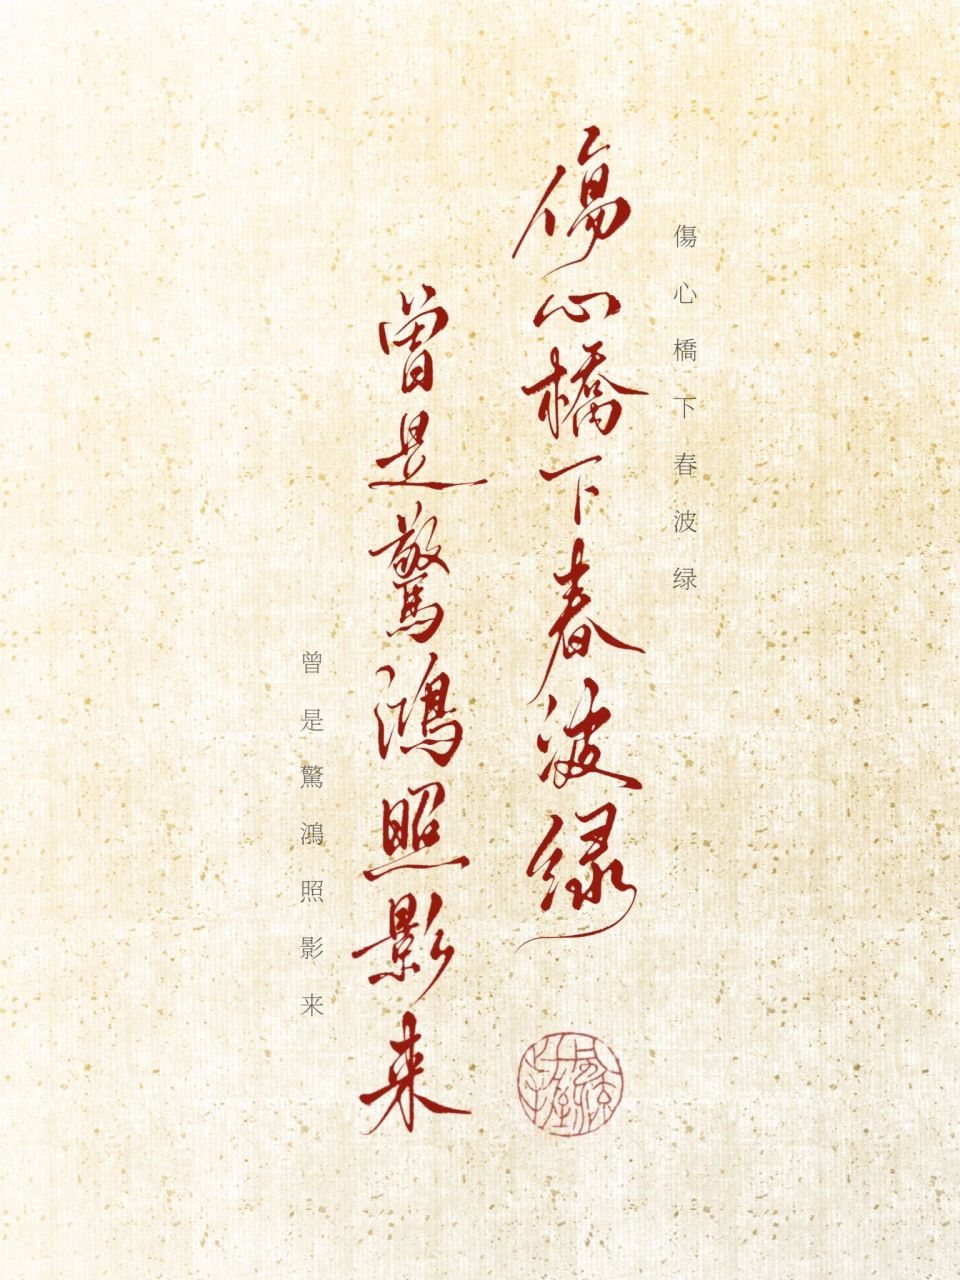 傷心橋下春波绿
傷心橋下春波绿
曾是驚鴻照影来
曾是驚鴻照影来